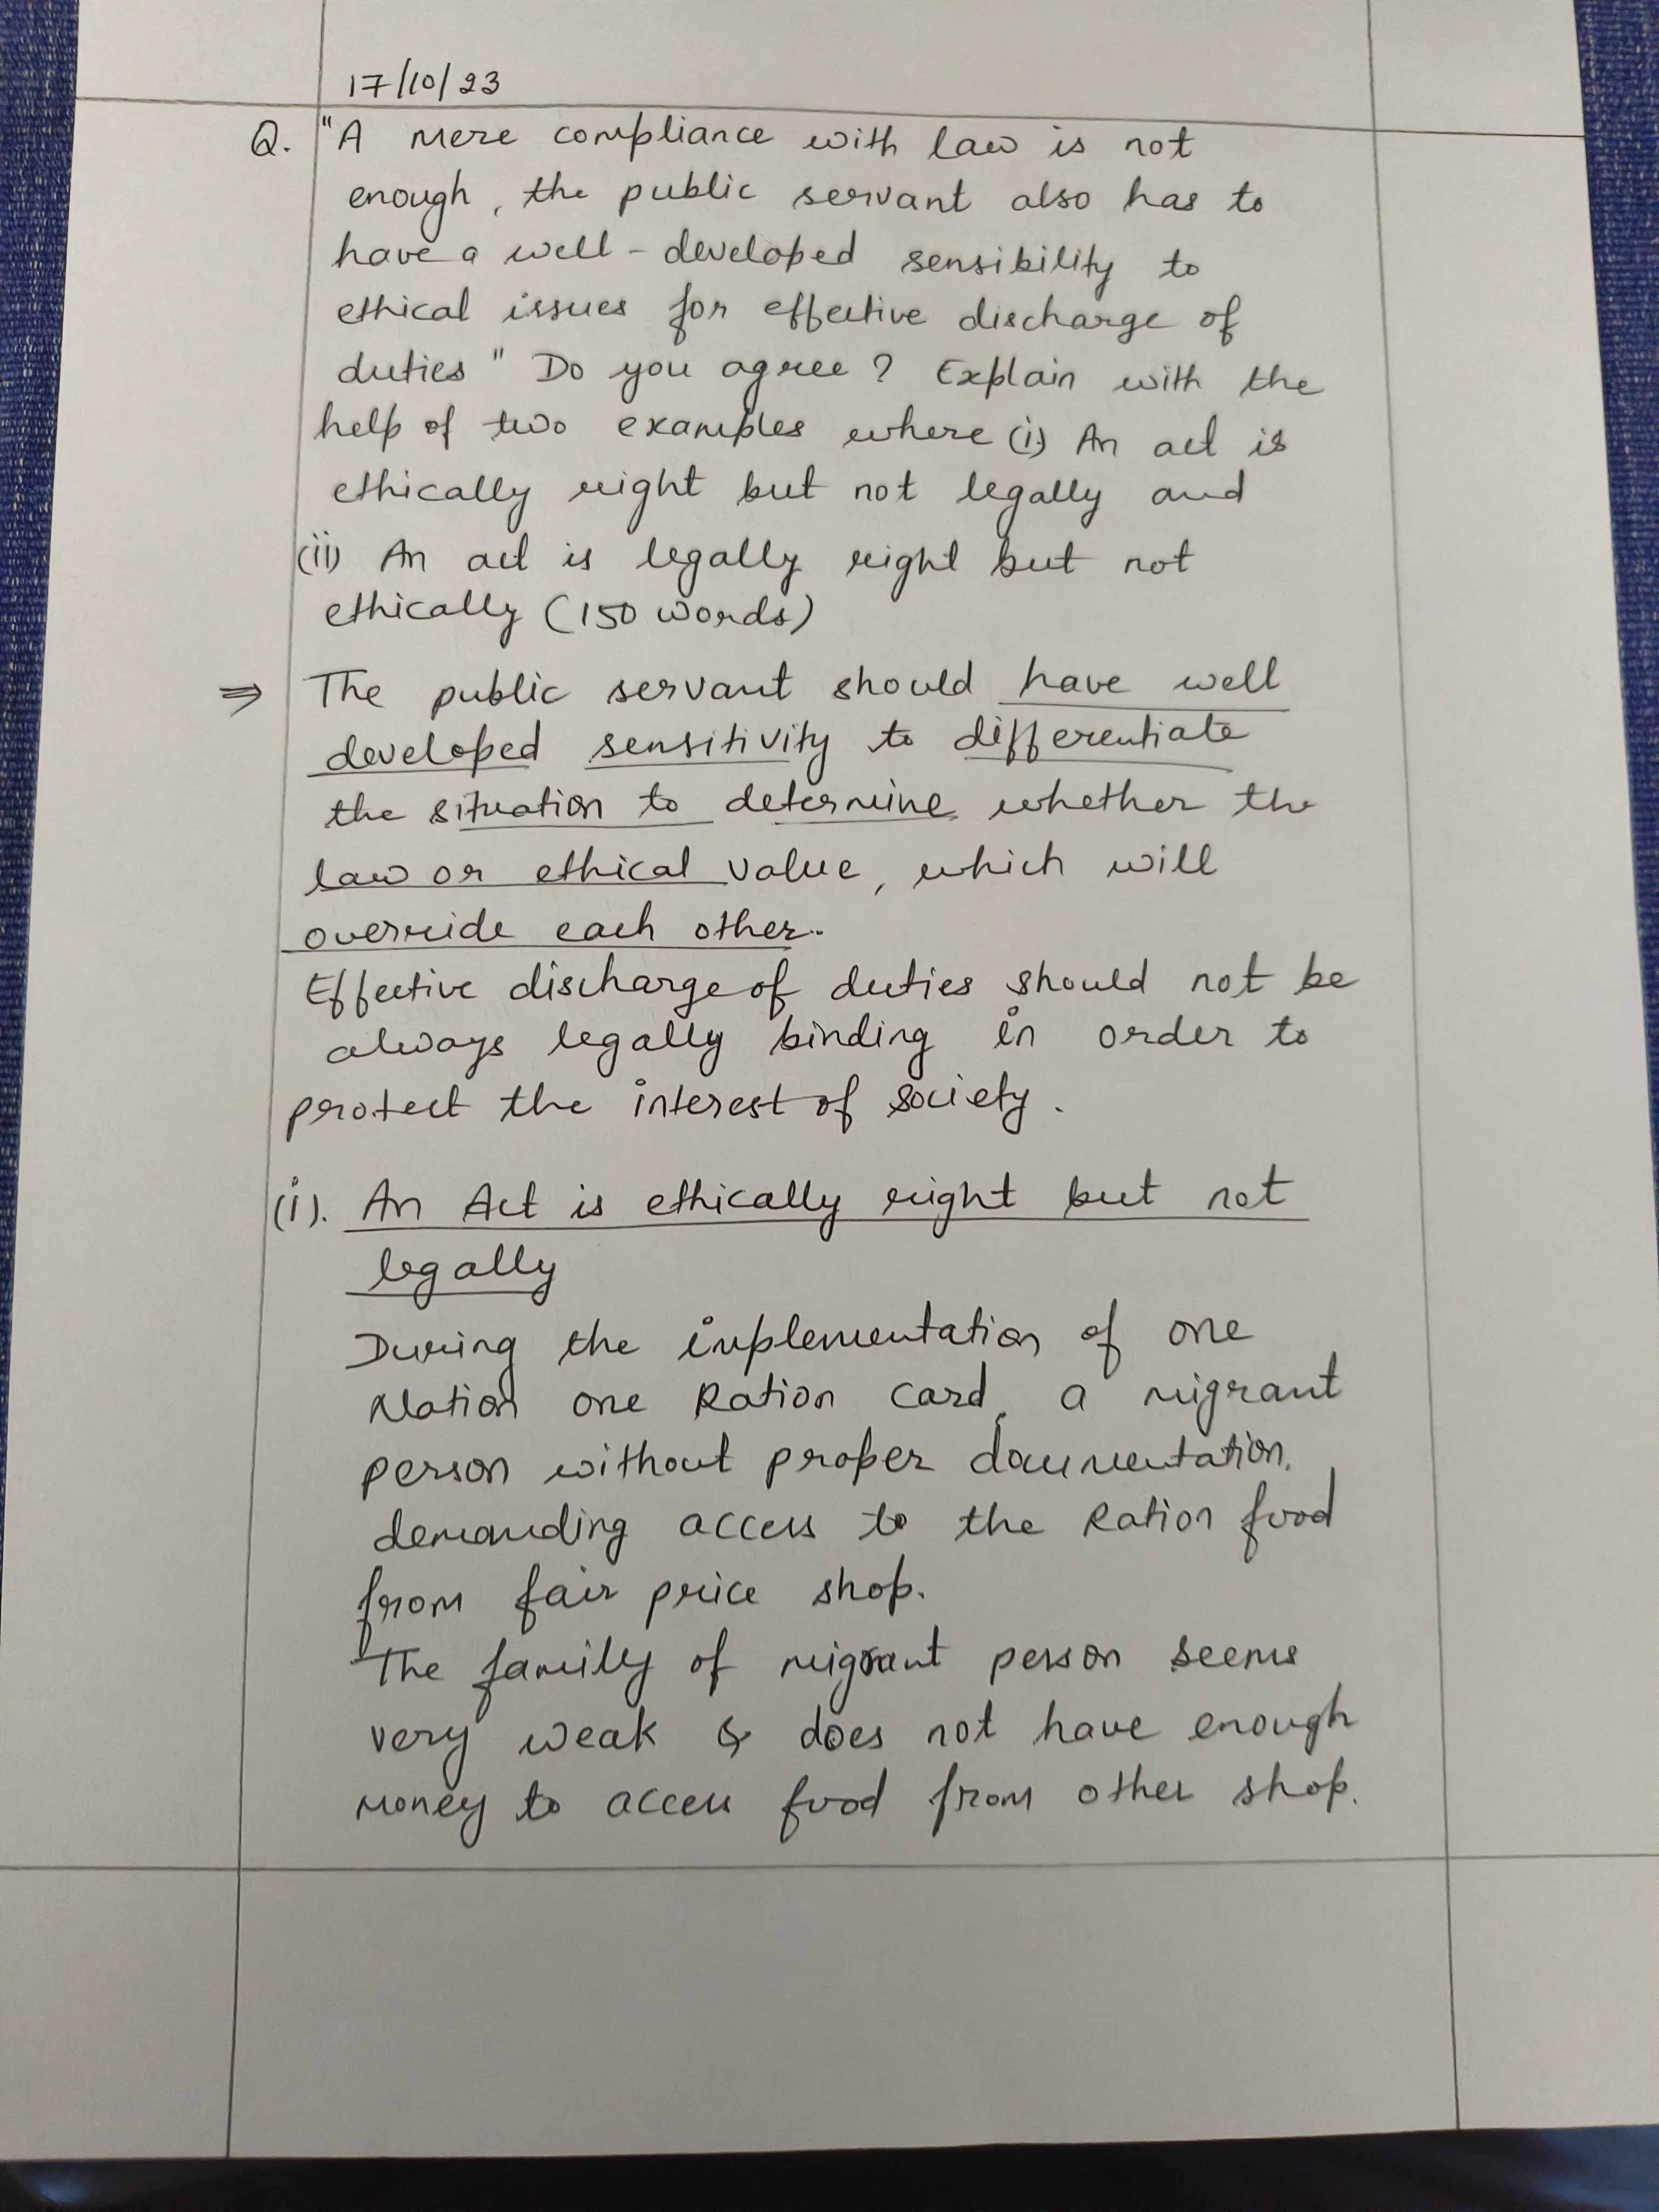 17/10/23
Q. "A mere compliance with law is not
enough, the public servant also has to
have a well-developed sensibility to
ethical issues for effective discharge of
duties" Do you agree? Explain with the
help of two examples where (i) An act is
ethically right but not legally and
(ii) An act is legally right but not
ethically (150 words)
⇒ The public servant should have well
developed sensitivity to differentiate
the situation to determine whether the
law or ethical value, which will
override each other.
Effective discharge of duties should not be
always legally binding in order to
protect the interest of society.
(i). An Act is ethically right but not
legally
During the implementation of one
Nation one Ration Card, a migrant
person without proper documentation.
demanding access to the Ration food
from fair price shop.
The family of migrant person seems
very weak & does not have enough
money to access food from other shop.